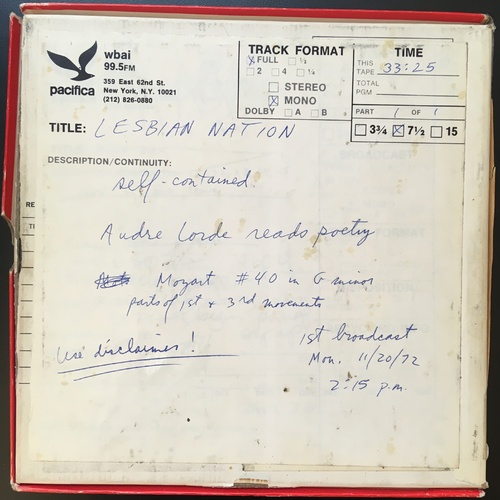 wbai
99.5FM
pacifica
359 East 62nd St.
New York, N.Y. 10021
(212) 826-0880
TRACK FORMAT
FULL ½
2 4 ¼
STEREO
MONO
DOLBY A B
TIME
THIS TAPE 33:25
TOTAL PGM
PART 1 OF 1
3¾ 7½ 15
TITLE: LESBIAN NATION
DESCRIPTION/CONTINUITY:
self-contained.
Audre Lorde reads poetry
Mozart #40 in G minor
parts of 1st + 3rd movements
Use disclaimer!
1st broadcast
Mon. 11/20/72
2:15 p.m.
RE
TI